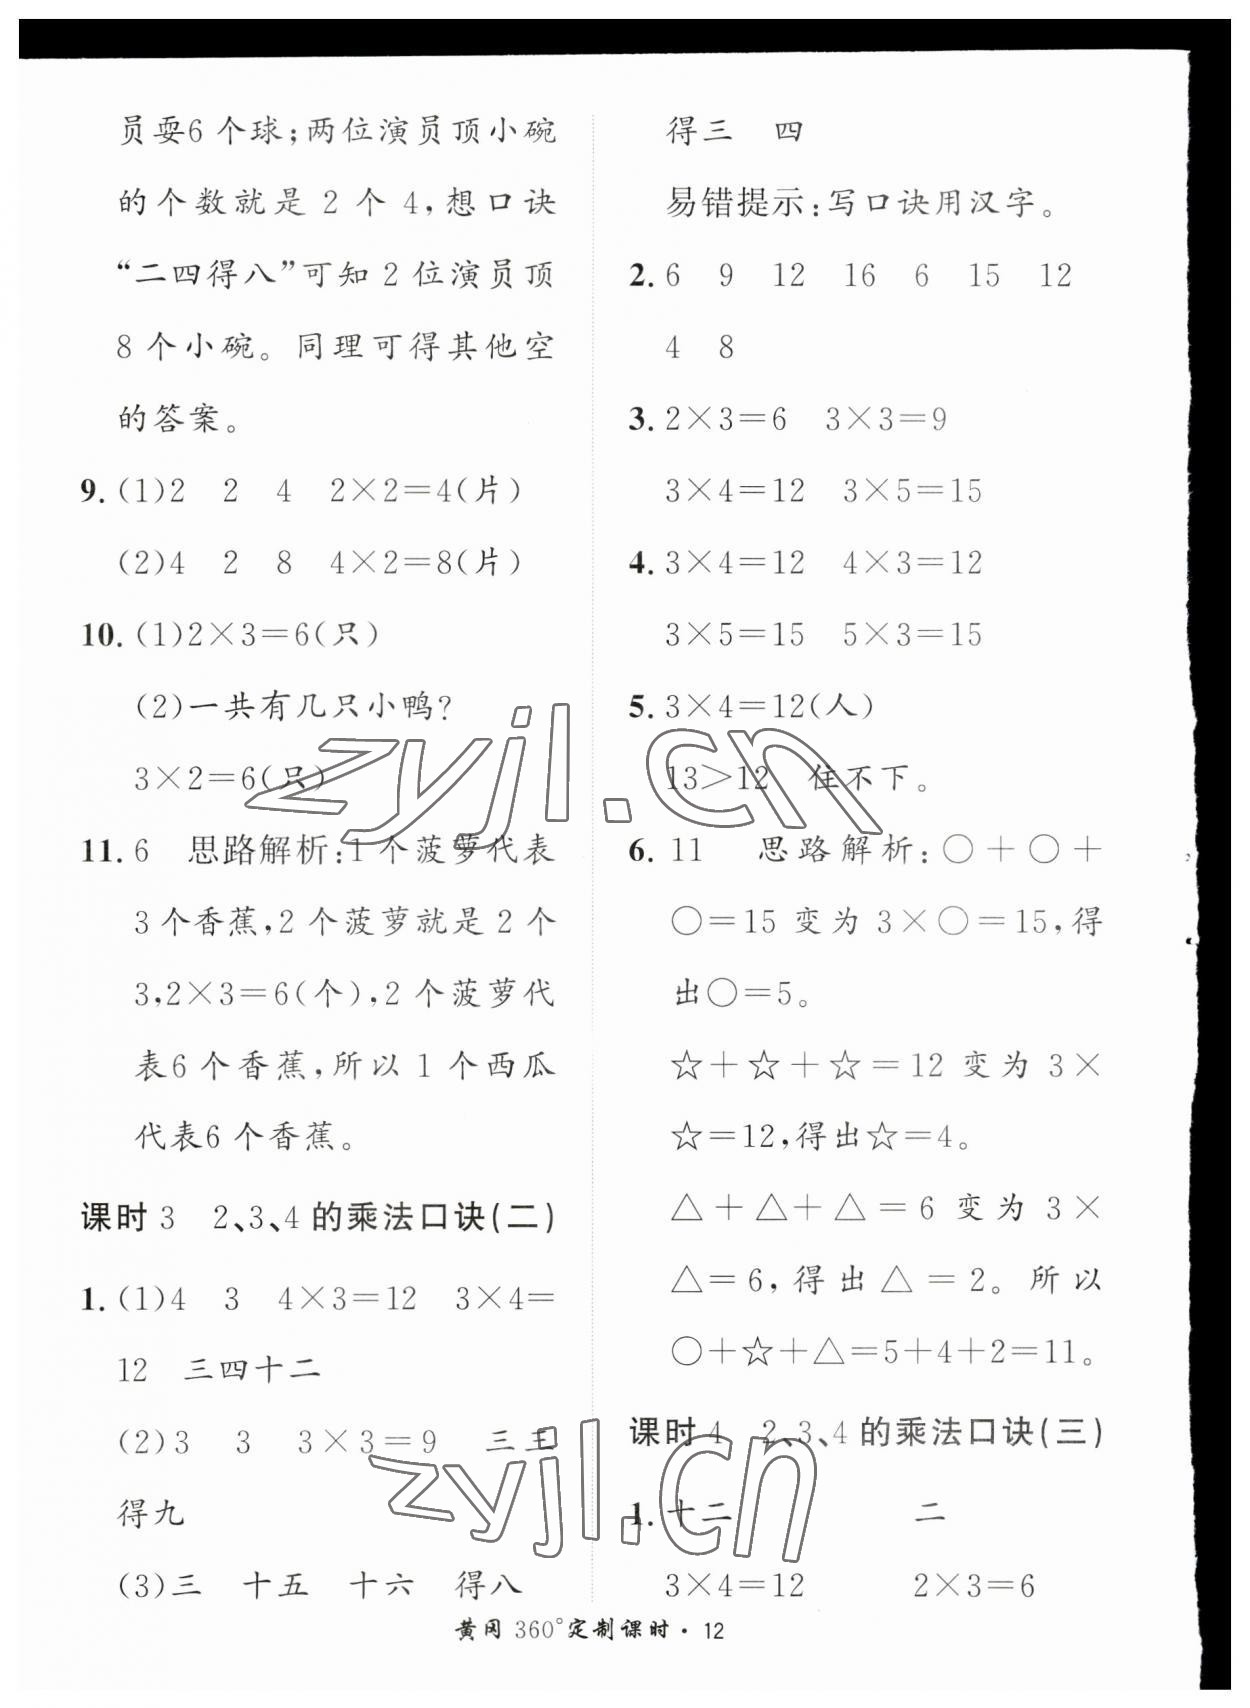 员耍6个球;两位演员顶小碗
的个数就是 2 个 4,想口诀
“二四得八”可知 2 位演员顶
8个小碗。同理可得其他空
的答案。
9. (1)2 2 4 2×2=4(片)
(2)4 2 8 4×2=8(片)
10. (1)2×3=6(只)
(2)一共有几只小鸭?
3×2=6(只)
11. 6 思路解析:1个菠萝代表
3个香蕉,2个菠萝就是2个
3,2×3=6(个),2个菠萝代
表6个香蕉,所以1个西瓜
代表6个香蕉。
课时3 2、3、4的乘法口诀(二)
1. (1)4 3 4×3=12 3×4=
12 三四十二
(2)3 3 3×3=9 三三
得九
(3)三 十五 十六 得八
得三 四
易错提示:写口诀用汉字。
2. 6 9 12 16 6 15 12
4 8
3. 2×3=6 3×3=9
3×4=12 3×5=15
4. 3×4=12 4×3=12
3×5=15 5×3=15
5. 3×4=12(人)
13>12 住不下。
6. 11 思路解析:○+○+
○=15 变为 3×○=15,得
出○=5。
☆+☆+☆=12 变为 3×
☆=12,得出☆=4。
△+△+△=6 变为 3×
△=6,得出△=2。所以
○+☆+△=5+4+2=11。
课时4 2、3、4的乘法口诀(三)
1. 十二 二
3×4=12 2×3=6
黄冈 360°定制课时·12
zyjl.cn
zyjl.cn